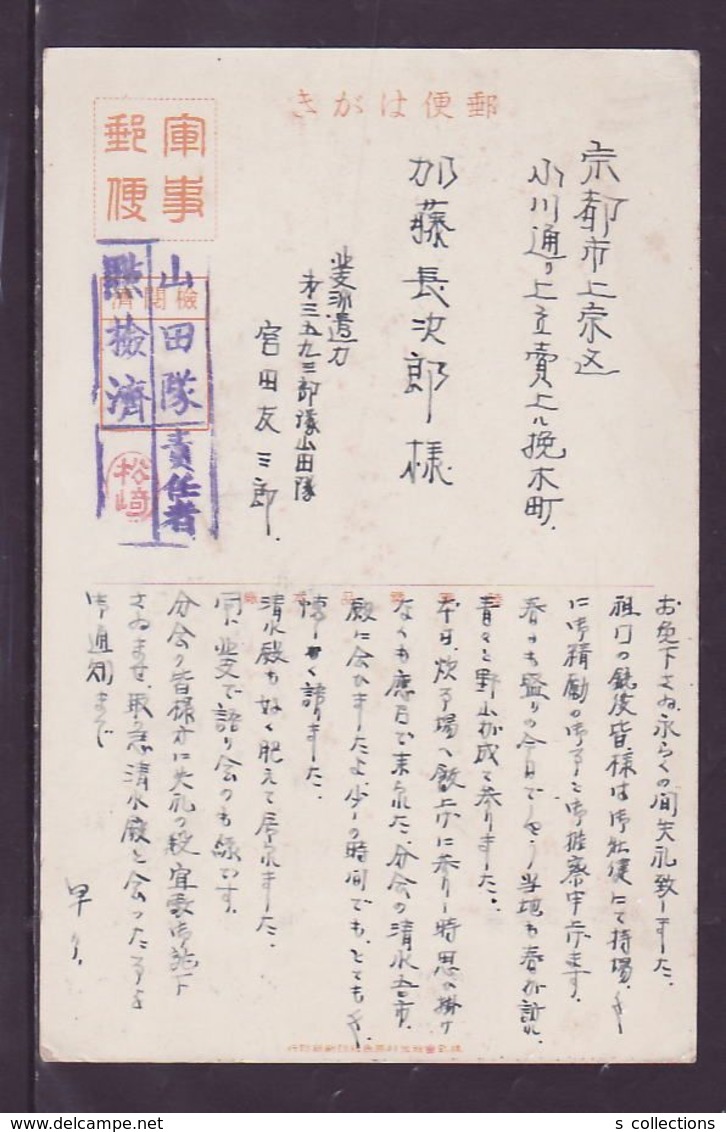 郵便はがき
軍事
郵便
檢閲濟
山田隊 責任者
點檢濟
松崎
京都市上京区
小川通り上立賣上ル挽木町
加藤長次郎様
中支派遣
第三五九三部隊山田隊
宮田友三郎
お免下さゐ永らくの間失礼致しました
祖国の銃後皆様は御壮健にて持場々
に御精励の御事と御推察申上ます
春日も盛りの今日でせう当地も春が訪れ
青々と野山が成て参りました
本日炊事場へ飯上に参りし時思ゐ掛け
なくも應召で来られた分会の清水吉市
殿に会ひましたよ少しの時間でもとても
懐しく語りました
清水殿も好く肥えて居られました
同じ中支で語り会のも縁です
分会の皆様方に失礼の段宜敷御託下
さゐませ取急清水殿と会つた事を
御通知まで
早々
s collections